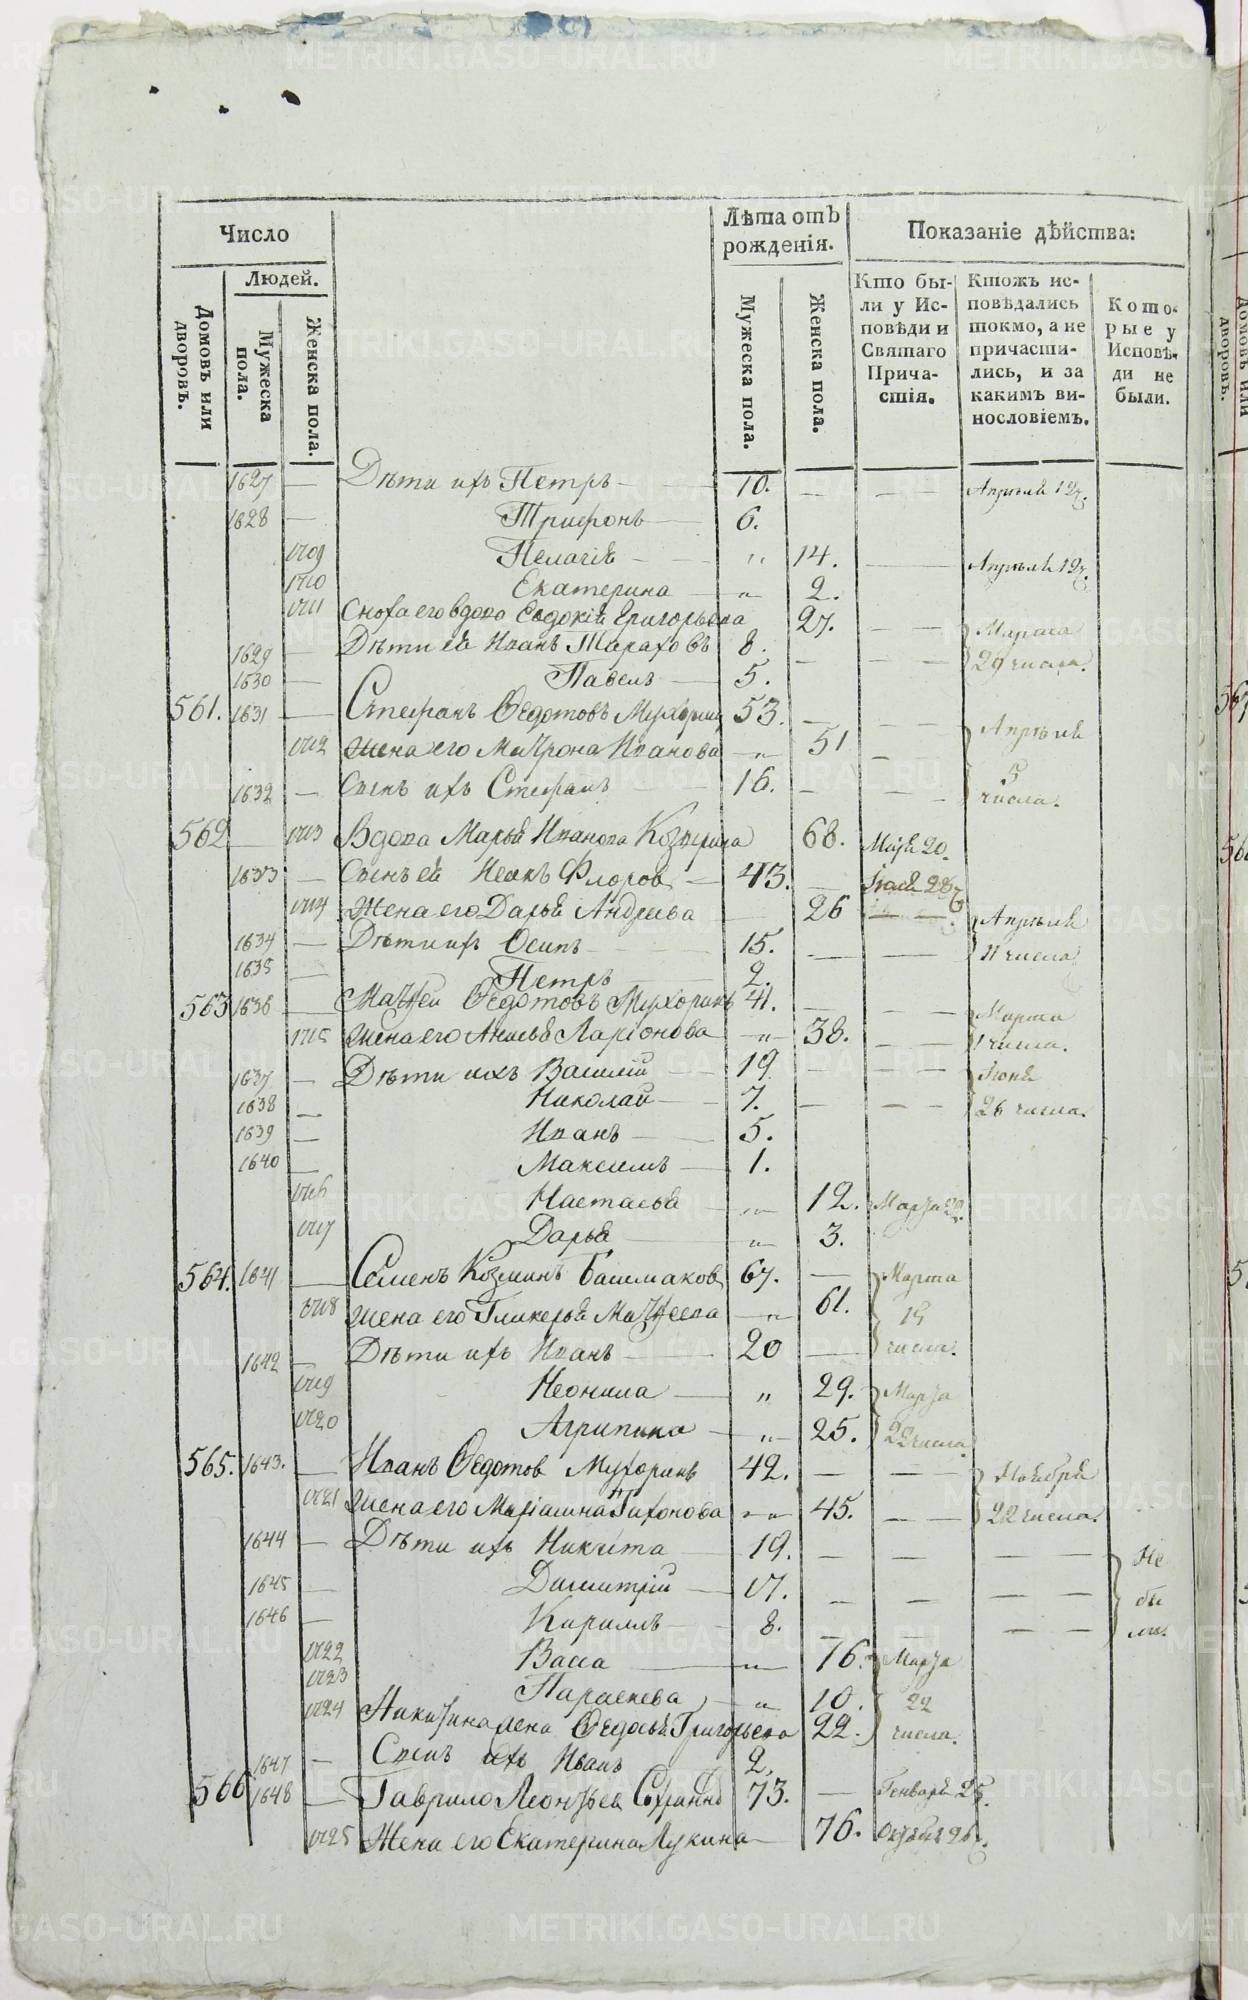 Число
Лѣта отъ рожденія.
Показаніе дѣйства:
Людей.
Домовъ или дворовъ.
Мужеска пола.
Женска пола.
Мужеска пола.
Женска пола.
Кто были у Исповѣди и Святаго Причастія.
Ктожъ исповѣдались токмо, а не причастились, и за какимъ винословіемъ.
Которые у Исповѣди не были.
1627 — Дѣти ихъ Петръ — 10. — — — Апрѣля 12
1628 — Трифонъ — 6.
1709 Пелагія — „ 14. — Апрѣля 12
1710 Екатерина — „ 2.
1711 Сноха его вдова Евдокія Григорьева 27. — — Марта
1629 — Дѣти ея Иванъ Тараховъ 8. — — — 29 числа.
1630 — Павелъ — 5.
561. 1631 — Стефанъ Ѳедотовъ Мухоринъ 53. — — Апрѣля
1712 жена его Матрона Иванова — „ 51 — 5
1632 — Сынъ ихъ Стефанъ 16. — — — числа.
562 1713 Вдова Марья Иванова 68. Маія 20.
1633 — Сынъ ея Исакъ Флоровъ — 43. — 28
1714 Жена его Дарья Андреева 26 — — Апрѣля
1634 — Дѣти ихъ Осипъ 15. — — — 11 числа
1635 — Петръ 2.
563 1636 — Матѳей Ѳедотовъ Мухоринъ 41. — — — Марта
1715 жена его Анисья Ларіонова „ 38. — — 1 числа.
1637 — Дѣти ихъ Василій — 19 — — — Іюня
1638 — Николай — 7. — — — 26 числа.
1639 — Иванъ — 5.
1640 — Максимъ — 1.
1716 Настасья „ 12. Марта 22.
1717 Дарья „ 3.
564. 1641 — Семенъ Козминъ Башмаковъ 67. — Марта
1718 жена его Гликерья Матѳеева „ 61. 15
1642 — Дѣти ихъ Иванъ — 20 — числа.
1719 Неонила — „ 29. Марта
1720 Агрипина — „ 25. 22 числа
565. 1643. — Иванъ Ѳедотовъ Мухоринъ 42. — — Ноября
1721 жена его Маріамна Тихонова „ 45. — — 22 числа.
1644 — Дѣти ихъ Никита — 19. — — — — Не
1645 — Димитрій — 17. — — — — бы
1646 — Кириллъ — 8. — — — — ли.
1722 Васса — „ 16. Марта
1723 Параскева — „ 10. 22
1724 Никитина жена Ѳедосья Григорьева 22. числа.
1647 — Сынъ ихъ Иванъ 2.
566 1648 — Гаврило Леонтьевъ 73. — Генваря 25.
1725 Жена его Екатерина Лукина — 76. Октября 26
METRIKI.GASO-URAL.RU